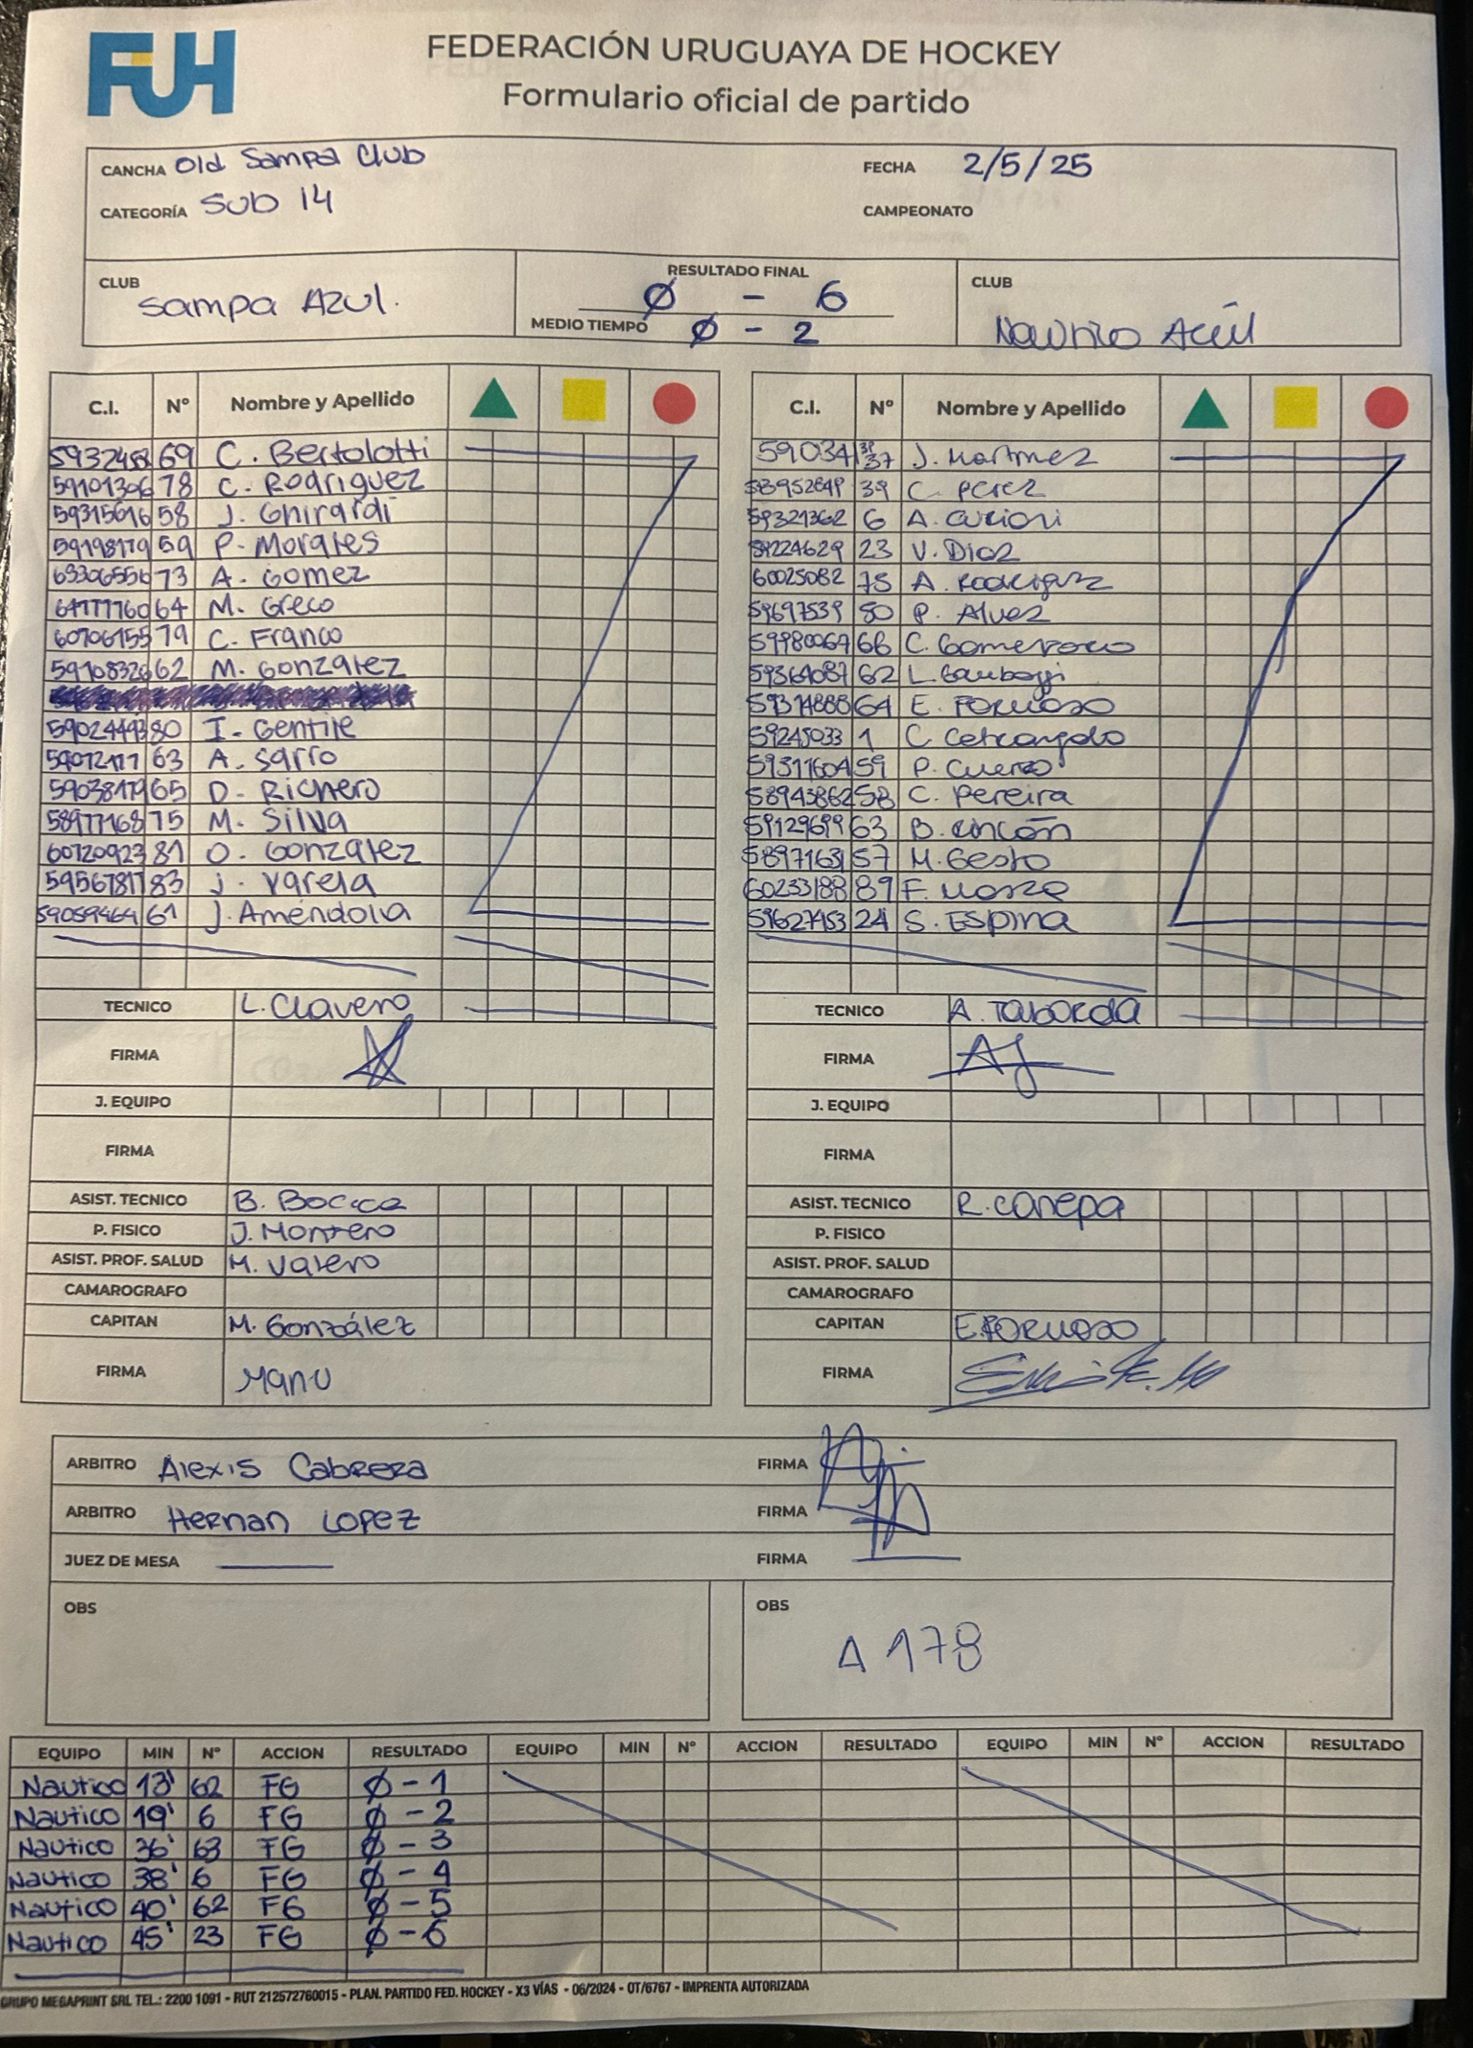 FUH
FEDERACIÓN URUGUAYA DE HOCKEY
Formulario oficial de partido
CANCHA Old Sampa Club FECHA 2/5/25
CATEGORÍA SUB 14 CAMPEONATO
CLUB Sampa Azul. RESULTADO FINAL Ø - 6 CLUB
MEDIO TIEMPO Ø - 2 Nautico Azul
C.I. Nº Nombre y Apellido
69 C. Bertolotti
59101306 78 C. Rodriguez
59315616 58 J. Ghirardi
59198179 59 P. Morales
63306556 73 A. Gomez
64777760 64 M. Greco
60706155 79 C. Franco
59108326 62 M. Gonzalez
59024493 80 I. Gentile
63 A. Sarro
59038179 65 D. Richero
58977168 75 M. Silva
60720923 81 O. Gonzalez
59567817 83 J. Varela
59059464 61 J. Améndola
TECNICO L. Clavero
FIRMA
J. EQUIPO
FIRMA
ASIST. TECNICO B. Bocca
P. FISICO J. Montero
ASIST. PROF. SALUD M. Valero
CAMAROGRAFO
CAPITAN M. González
FIRMA Manu
C.I. Nº Nombre y Apellido
37 J. Martinez
58952849 39 C. Perez
59321362 6 A. Curiori
59224629 23 V. Diaz
60025082 75 A. Rodriguez
59697539 80 P. Alvez
59980067 66 C.
59364087 62 L.
59374888 64 E. Formoso
59245033 1 C. Cetrangolo
59311604 59 P. Cuenzo
58943862 58 C. Pereira
59129699 63 B. Rincón
5897163 57 M. Gesto
60233188 89 F.
59627453 24 S. Espina
TECNICO A. Taborda
FIRMA
J. EQUIPO
FIRMA
ASIST. TECNICO R. Canepa
P. FISICO
ASIST. PROF. SALUD
CAMAROGRAFO
CAPITAN E. Formoso
FIRMA
ARBITRO Alexis Cabrera FIRMA
ARBITRO Hernan Lopez FIRMA
JUEZ DE MESA FIRMA
OBS
OBS
A 178
EQUIPO MIN Nº ACCION RESULTADO EQUIPO MIN Nº ACCION RESULTADO EQUIPO MIN Nº ACCION RESULTADO
Nautico 13' 62 FG Ø - 1
Nautico 19' 6 FG Ø - 2
Nautico 36' 63 FG Ø - 3
Nautico 38' 6 FG Ø - 4
Nautico 40' 62 FG Ø - 5
Nautico 45' 23 FG Ø - 6
GRUPO MEGAPRINT SRL TEL.: 2200 1091 - RUT 212572760015 - PLAN. PARTIDO FED. HOCKEY - X3 VÍAS - 06/2024 - OT/6767 - IMPRENTA AUTORIZADA